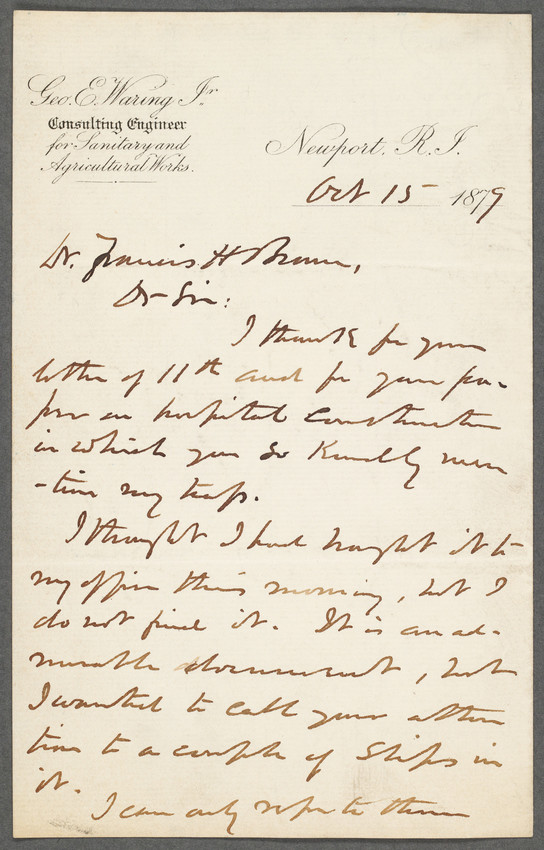 Geo. E. Waring Jr.
Consulting Engineer
for Sanitary and
Agricultural Works.
Newport. R. I.
Oct 15 1879
Dr. Francis H Brown,
Dr Sir:
I thank for your
letter of 11th and for your pa-
per on hospital construction
in which you so kindly men
-tion my trap.
I thought I had brought it to
my office this morning, but I
do not find it. It is an ad-
mirable document, but
I wanted to call your atten
tion to a couple of slips in
it.
I can only refer to them